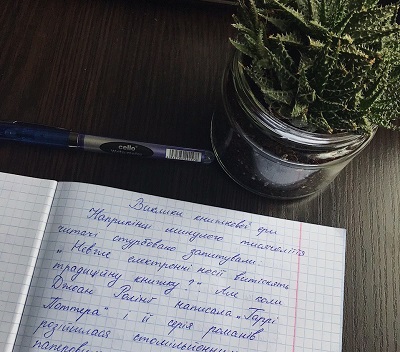 cello
Виклики книжкової ери
Наприкінці минулого тисячоліття
читачі стурбовано запитували
„Невже електронні носії витіснять
традиційну книжку?“. Але коли
Джоан Ролінґ написала „Гаррі
Поттера“ і її серія романів
розійшлася стомільйонним